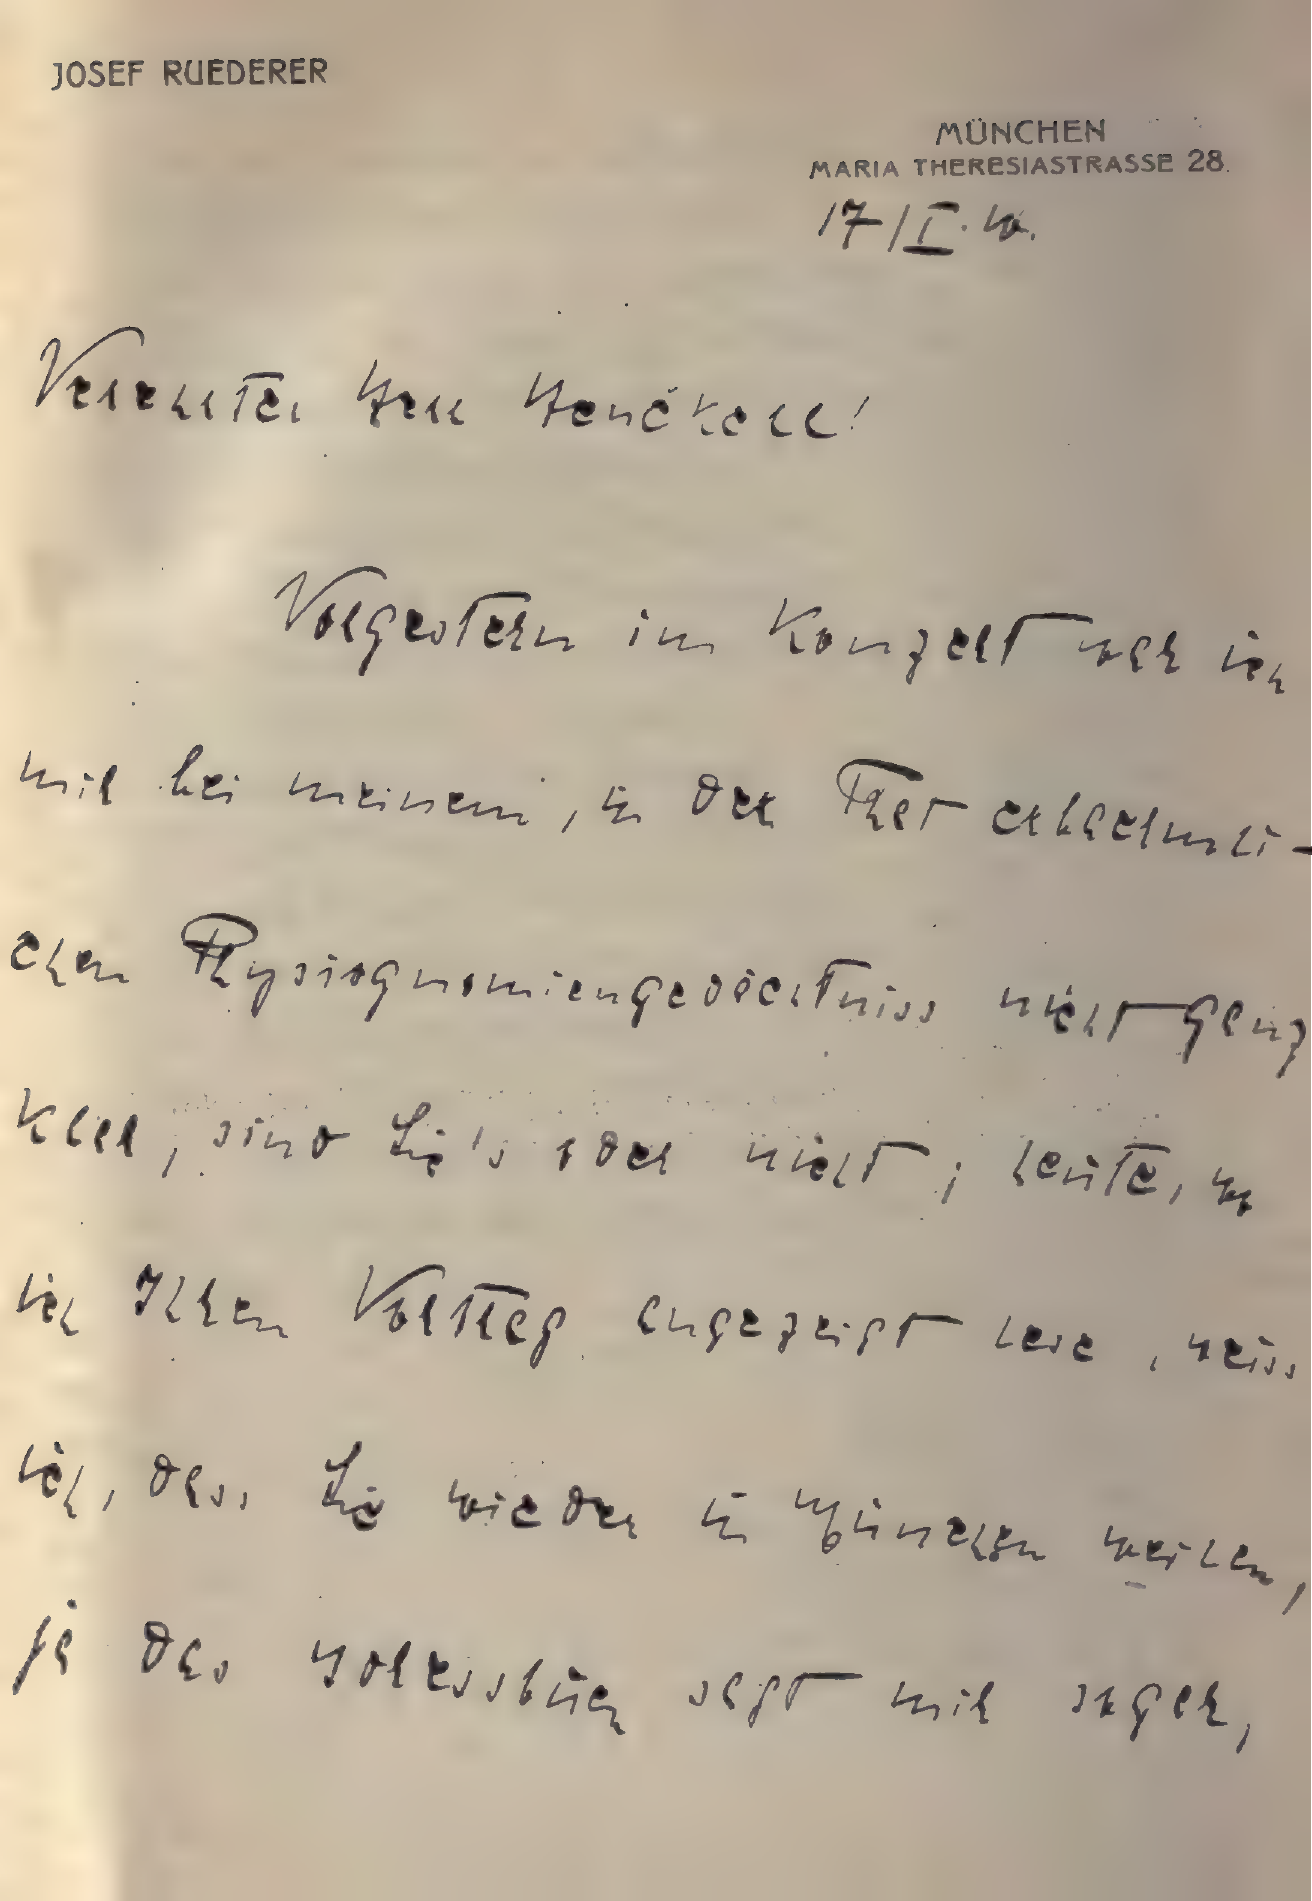 JOSEF RUEDERER
MÜNCHEN
MARIA THERESIASTRASSE 28.
17/I. 10.
Verehrter Herr Henckell!
Vorgestern im Konzert war ich
mir bei meinem, in der That erbaermli-
chen Physiognomiengedächtniss nicht ganz
klar, sind Sie's oder nicht; heute, wo
ich Ihren Vortrag angezeigt lese, weiss
ich, dass Sie wieder in München weilen,
ja das Adressbuch sagt mir sogar,